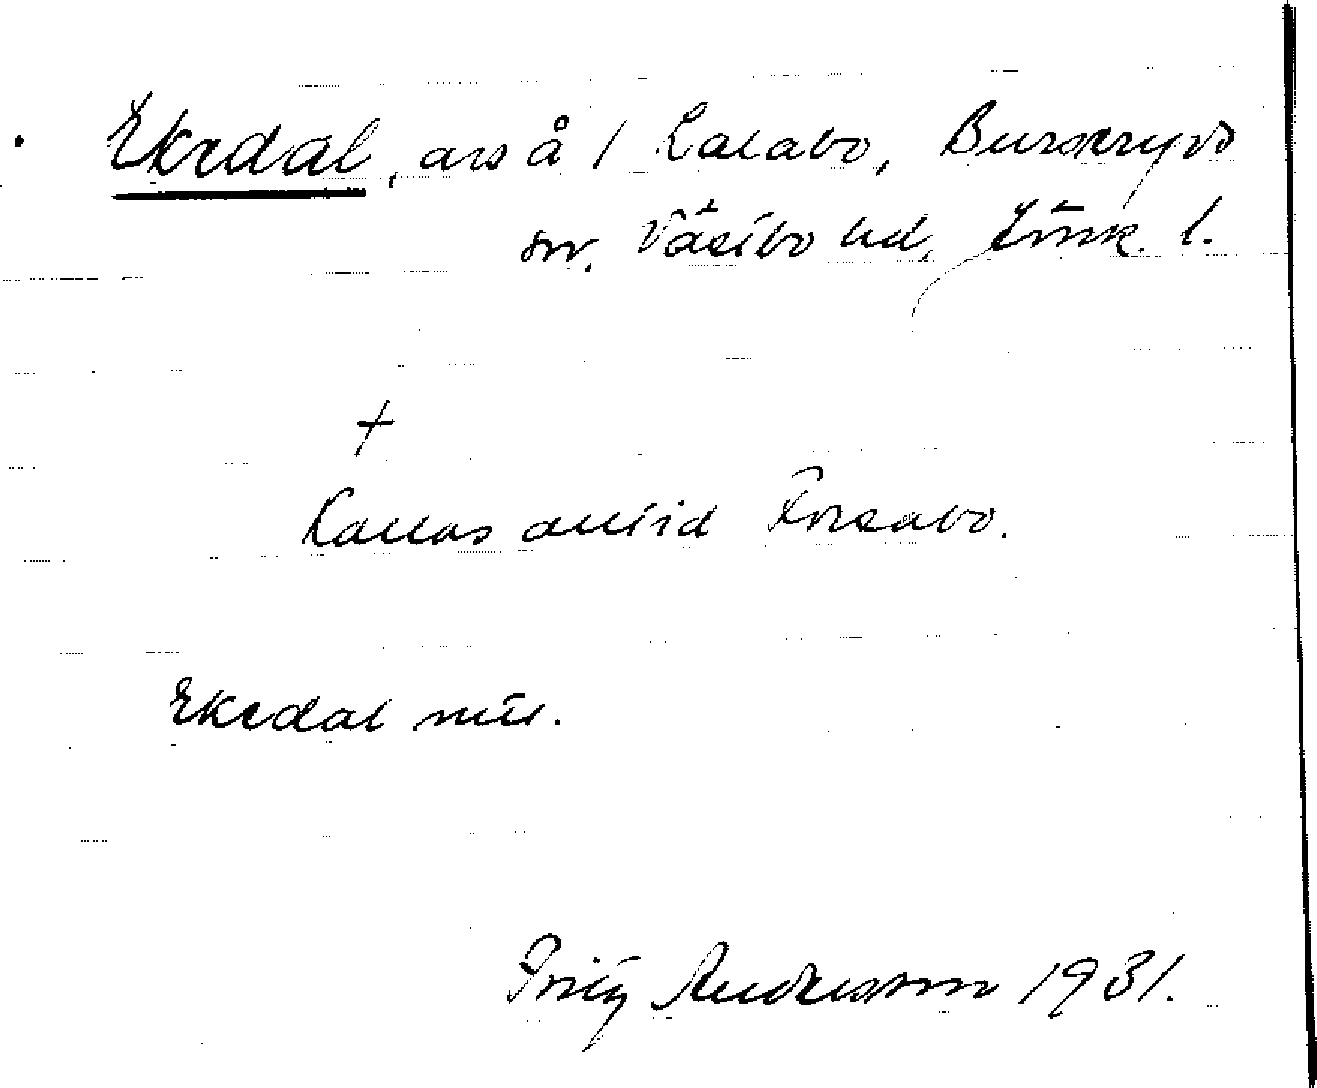 Ekedal, avs å 1 Lalabo, Burseryds
sn. Västbo hd, Jönk. l.
+
Kallas alltid Forsabo.
Ekedal mtl.
Fritz Andersson 1931.